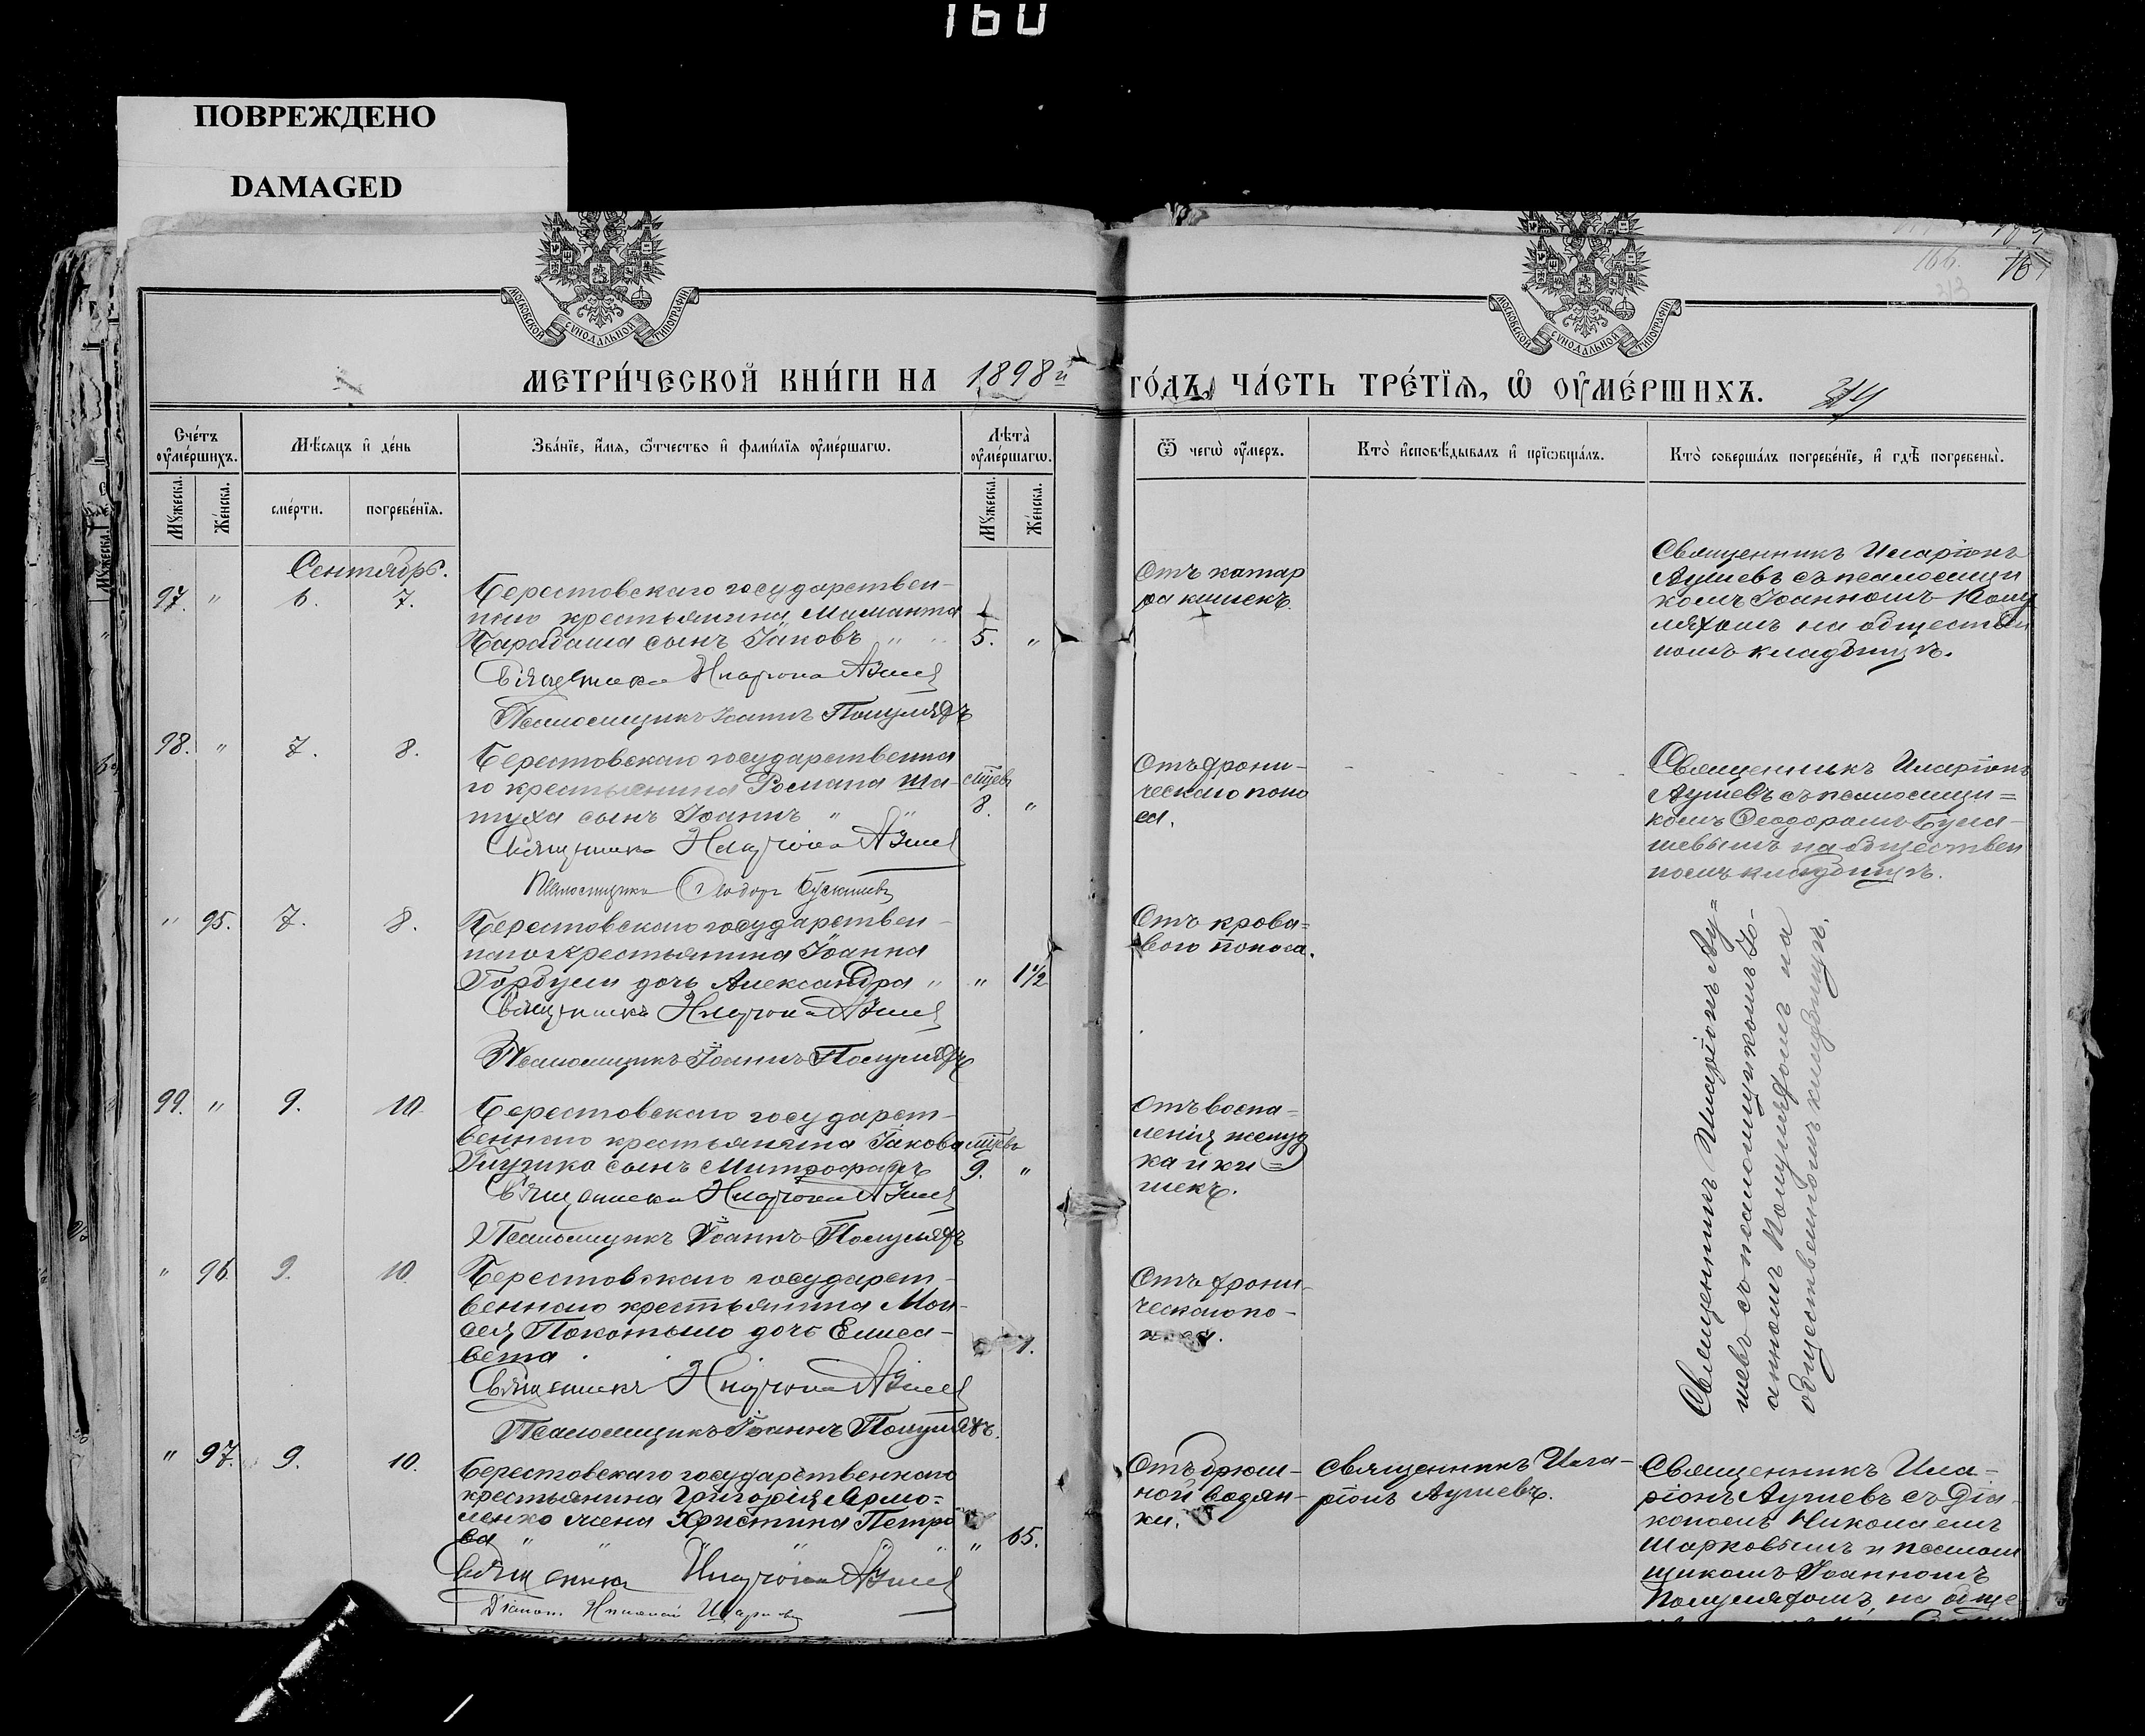 160
ПОВРЕЖДЕНО
DAMAGED
МОСКОВСКОЙ СУНОДАЛЬНОЙ ТИПОГРАФІИ
МОСКОВСКОЙ СУНОДАЛЬНОЙ ТИПОГРАФІИ
166.
МЕТРИ́ЧЕСКОЙ КНИ́ГИ НА 1898 й
ГО́ДЪ, ЧА́СТЬ ТРЕ́ТЇѦ, Ѿ ОУ҆МЕ́РШИХЪ.
Сче́тъ оу҆ме́ршихъ.
Мѣ́сяцъ и҆ де́нь
Зва́нїе, и҆́мѧ, ѻ҆́тчество и҆ фами́лїѧ оу҆ме́ршагѡ.
Лѣ́та оу҆ме́ршагѡ.
Мꙋ́жеска.
Же́нска.
сме́рти.
погребе́нїѧ.
Мꙋ́жеска.
Же́нска.
Ѿ чегѡ̀ оу҆́меръ.
Кто̀ и҆сповѣ́дывалъ и҆ прїѡбща́лъ.
Кто̀ соверша́лъ погребе́нїе, и҆ гдѣ̀ погребены̀.
Сентябрь.
97. " 6. 7.
Берестовскаго государствен-
наго крестьянина Маманта
Барабаша сынъ Іаковъ " "
5. "
Священникъ Иларіонъ
Псаломщикъ Іоаннъ Полуляхъ
Отъ катар
ра кишекъ.
Священникъ Иларіонъ
съ псаломщи
комъ Іоанномъ Полу
ляхомъ на обществен
номъ кладбищѣ.
98. " 7. 8.
Берестовскаго государственна
го крестьянина Романа Ша-
туха сынъ Іоаннъ " "
мѣсев
8. "
Священникъ Иларіонъ
Псаломщикъ Ѳеодоръ
Отъ хрони-
ческаго поно
са.
Священникъ Иларіонъ
съ псаломщи=
комъ Ѳеодоромъ
на обществен
номъ кладбищѣ.
" 95. 7. 8.
Берестовскаго государствен-
наго крестьянина Іоанна
Горбули дочь Александра "
" 1½
Священникъ Иларіонъ
Псаломщикъ Іоаннъ Полуляхъ
Отъ крова=
ваго поноса.
Священникъ Иларіонъ
съ псаломщикомъ Іо-
анномъ Полуляхомъ на
общественномъ кладбищѣ.
99. " 9. 10.
Берестовскаго государст-
веннаго крестьянина Іакова
Глушко сынъ Митрофанъ
9. "
Священникъ Иларіонъ
Псаломщикъ Іоаннъ Полуляхъ
Отъ воспа=
ленія желуд
ка и ки=
шекъ.
" 96. 9. 10.
Берестовскаго государст-
веннаго крестьянина Мои-
сея Покотыло дочь Елиса-
вета
1.
Священникъ Иларіонъ
Псаломщикъ Іоаннъ Полуляхъ.
Отъ хрони-
ческаго по-
носа.
" 97. 9. 10.
Берестовскаго государственнаго
крестьянина Григорія Ярмо=
ленко жена Христина Петро
ва " "
" 65.
Священникъ Иларіонъ
Діаконъ Николай Шарковъ
Отъ брюш-
ной водян-
ки.
Священникъ Ила-
ріонъ
Священникъ Ила=
ріонъ съ Діа-
кономъ Николаемъ
Шарковымъ и псалом
щикомъ Іоанномъ
Полуляхомъ, на обще